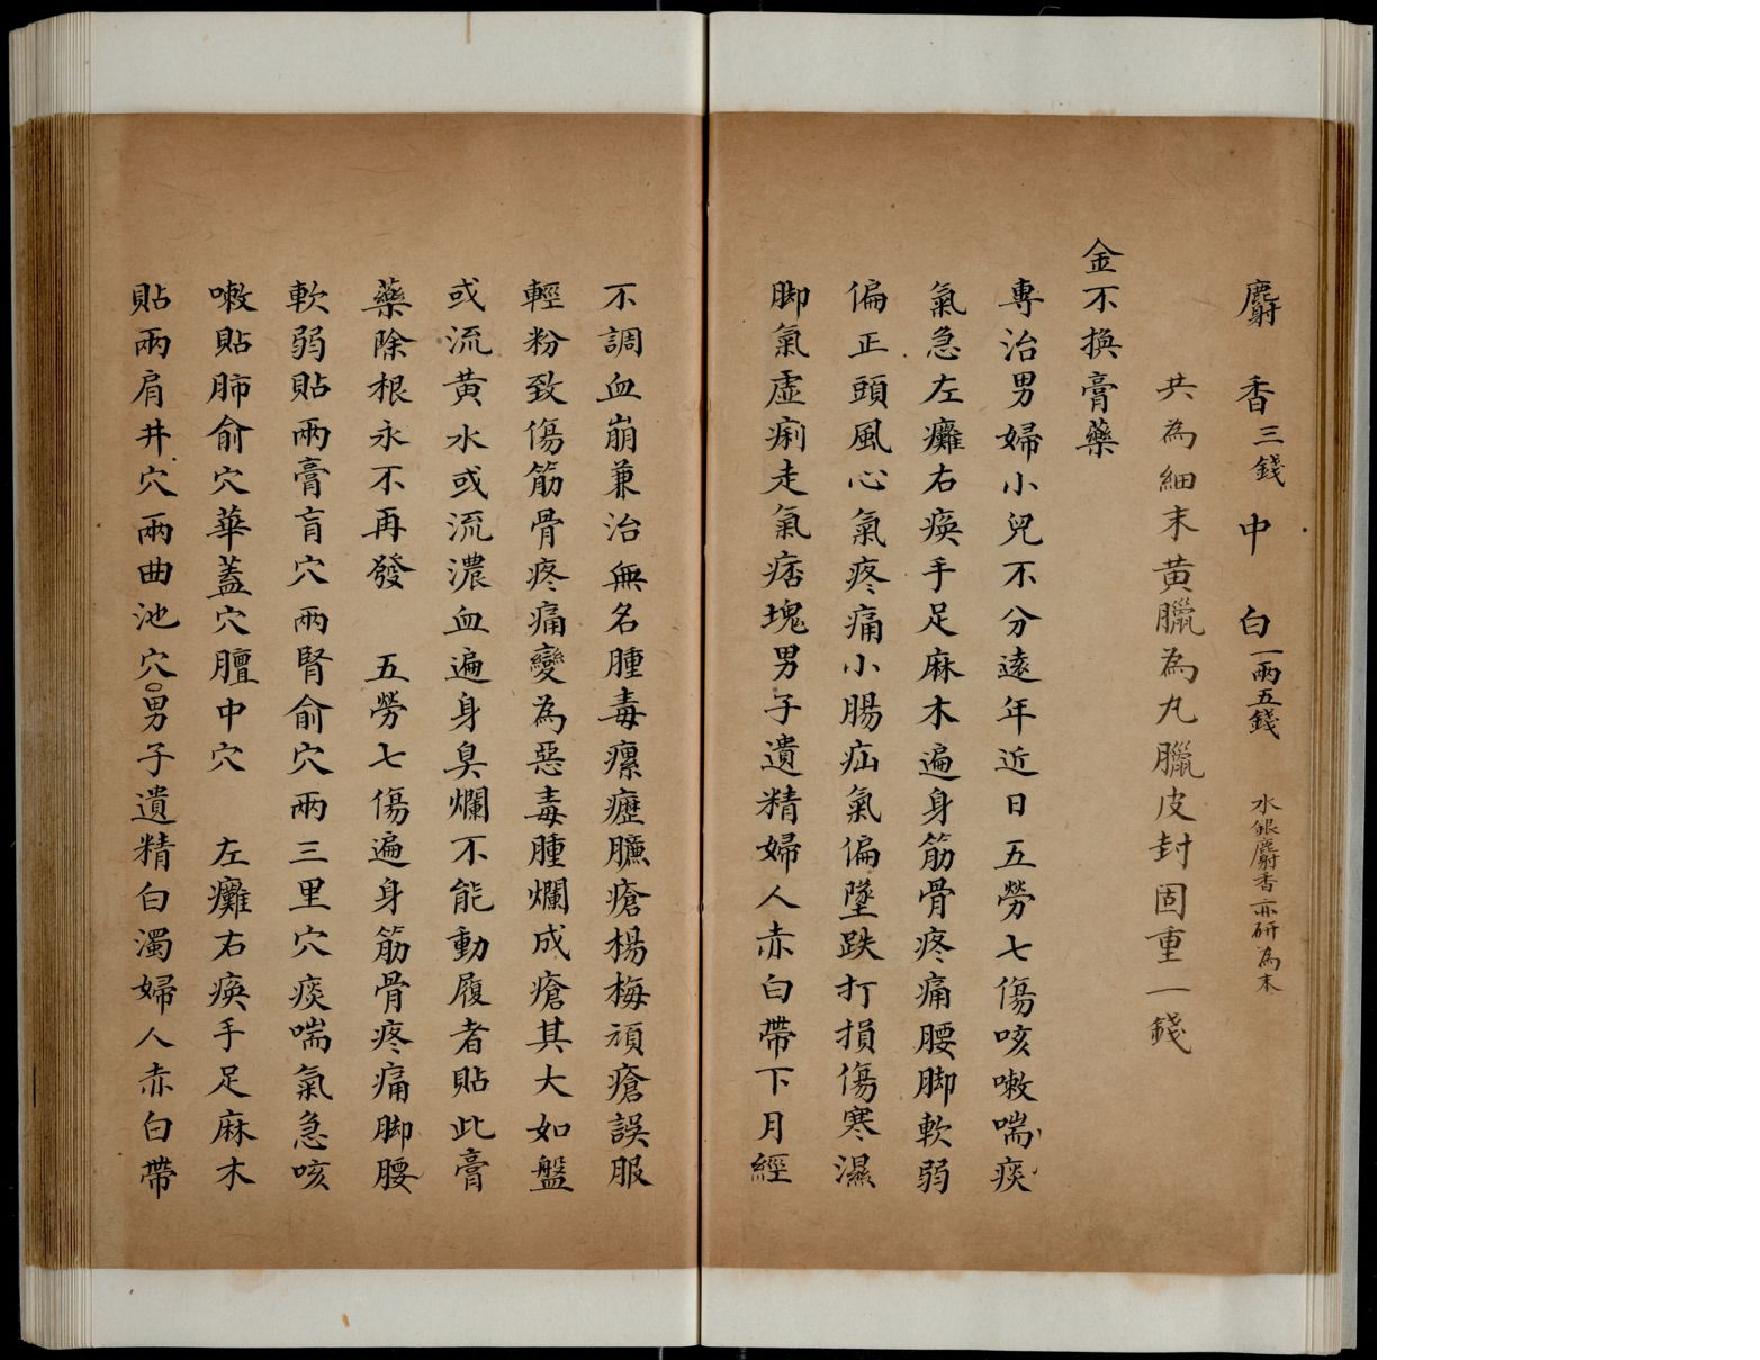 麝香三錢　中白一兩五錢　水銀麝香亦研為末
共為細末黃臘為丸臘皮封固重一錢
金不換膏藥
專治男婦小兒不分遠年近日五勞七傷咳嗽喘痰
氣急左癱右瘓手足麻木遍身筋骨疼痛腰脚軟弱
偏正頭風心氣疼痛小腸疝氣偏墜跌打損傷寒濕
脚氣虛痢走氣痞塊男子遺精婦人赤白帶下月經
不調血崩兼治無名腫毒瘰癧臁瘡楊梅頑瘡誤服
輕粉致傷筋骨疼痛變為惡毒腫爛成瘡其大如盤
或流黃水或流濃血遍身臭爛不能動履者貼此膏
藥除根永不再發　五勞七傷遍身筋骨疼痛脚腰
軟弱貼兩膏肓穴兩腎俞穴兩三里穴痰喘氣急咳
嗽貼肺俞穴華蓋穴膻中穴　左癱右瘓手足麻木
貼兩肩井穴兩曲池穴○男子遺精白濁婦人赤白帶